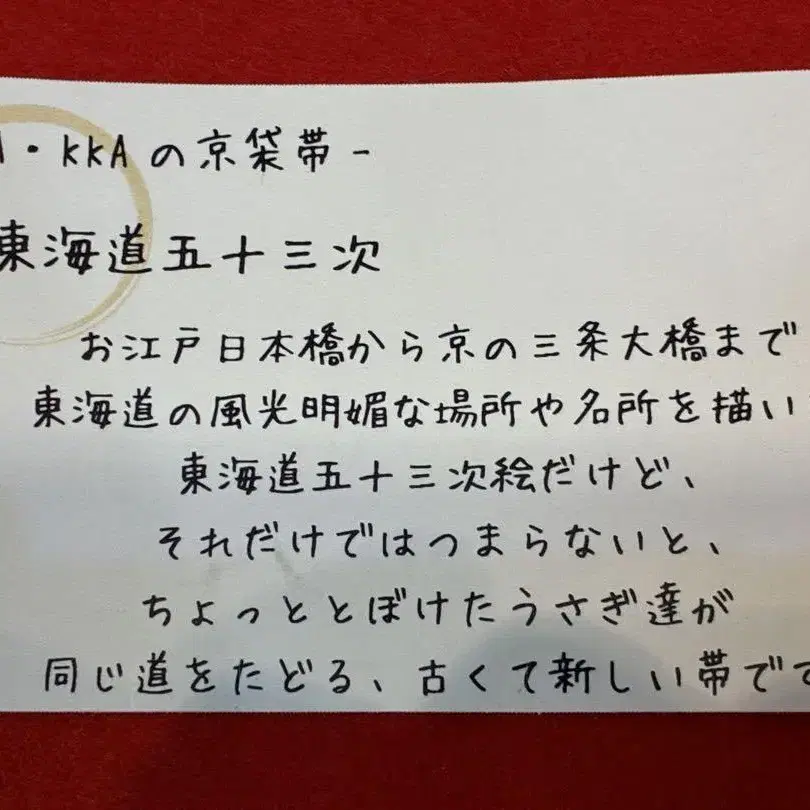 ・KKAの京袋帯-
東海道五十三次
お江戸日本橋から京の三条大橋まで
東海道の風光明媚な場所や名所を描い
東海道五十三次絵だけど、
それだけではつまらないと、
ちょっととぼけたうさぎ達が
同じ道をたどる、古くて新しい帯です